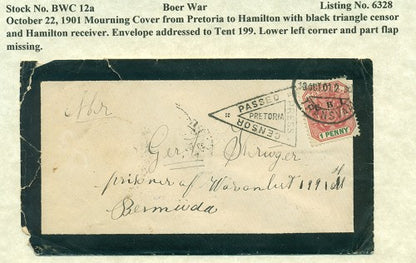 Stock No. BWC 12a Boer War Listing No. 6328
October 22, 1901 Mourning Cover from Pretoria to Hamilton with black triangle censor
and Hamilton receiver. Envelope addressed to Tent 199. Lower left corner and part flap
missing.
PASSED
PRETORIA
CENSOR
1 PENNY
Ger.
prisoner of
Bermuda